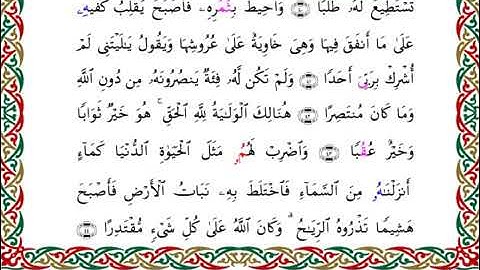 تَسْتَطِيعَ لَهُۥ طَلَبًا ٤٠ وَأُحِيطَ بِثُمُرِهِۦ فَأَصْبَحَ يُقَلِّبُ كَفَّيْهِ
عَلَىٰ مَا أَنفَقَ فِيهَا وَهِىَ خَاوِيَةٌ عَلَىٰ عُرُوشِهَا وَيَقُولُ يَٰلَيْتَنِى لَمْ
أُشْرِكْ بِرَبِّىَ أَحَدًا ٤١ وَلَمْ تَكُن لَّهُۥ فِئَةٌ يَنصُرُونَهُۥ مِن دُونِ اللَّهِ
وَمَا كَانَ مُنتَصِرًا ٤٢ هُنَالِكَ الْوَلَٰيَةُ لِلَّهِ الْحَقِّ ۚ هُوَ خَيْرٌ ثَوَابًا
وَخَيْرٌ عُقُبًا ٤٣ وَاضْرِبْ لَهُمُۥ مَثَلَ الْحَيَوٰةِ الدُّنْيَا كَمَاءٍ
أَنزَلْنَٰهُۥ مِنَ السَّمَاءِ فَاخْتَلَطَ بِهِۦ نَبَاتُ الْأَرْضِ فَأَصْبَحَ
هَشِيمًا تَذْرُوهُ الرِّيَٰحُ ۗ وَكَانَ اللَّهُ عَلَىٰ كُلِّ شَىْءٍ مُّقْتَدِرًا ٤٤